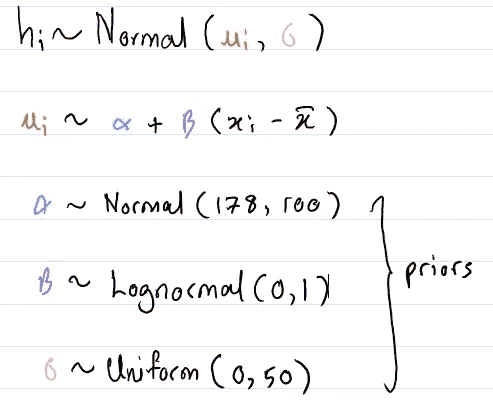 hᵢ ~ Normal (μᵢ, σ)
μᵢ ~ α + β (xᵢ - x̄)
α ~ Normal (178, 100)
β ~ Lognormal (0, 1)
σ ~ Uniform (0, 50)
priors